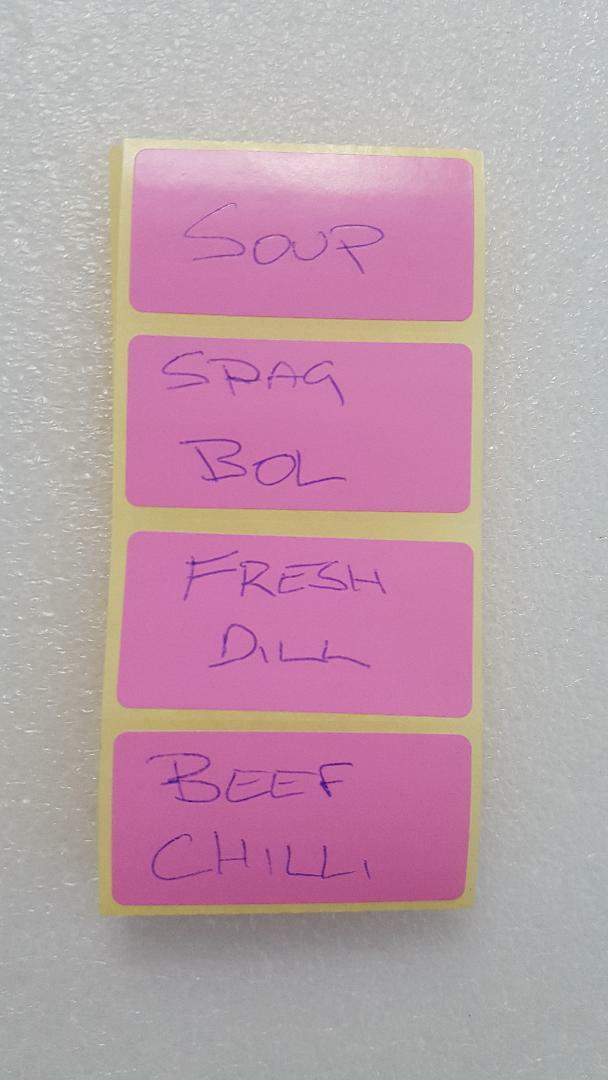 SOUP
SPAG
BOL
FRESH
DILL
BEEF
CHILLI